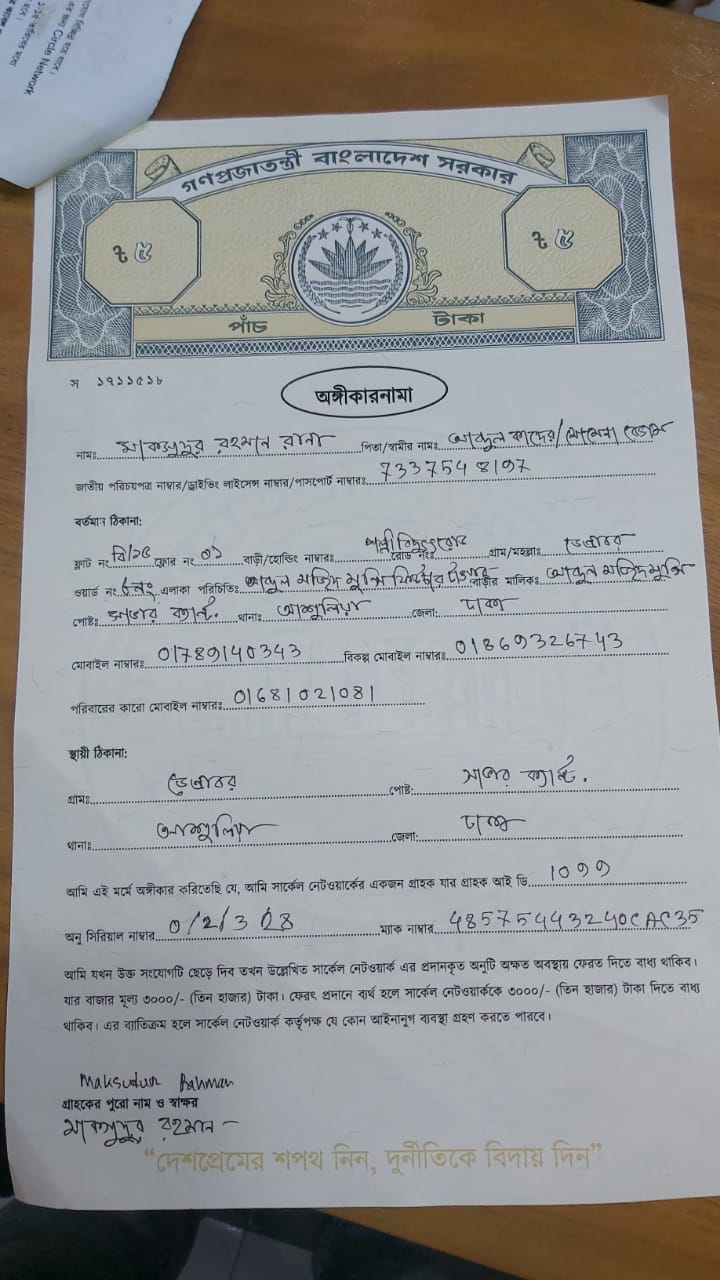 Circle Network
গণপ্রজাতন্ত্রী বাংলাদেশ সরকার
৳ ৫ ৳ ৫
পাঁচ টাকা
স ১৭১১৫১৮
অঙ্গীকারনামা
নামঃ মাকসুদুর রহমান রানা পিতা/স্বামীর নামঃ আব্দুল কাদের/মোমেনা বেগম
জাতীয় পরিচয়পত্র নাম্বার/ড্রাইভিং লাইসেন্স নাম্বার/পাসপোর্ট নাম্বারঃ 7337548197
বর্তমান ঠিকানা:
ফ্লাট নং বি/১৫ ফ্লোর নং ০১ বাড়ী/হোল্ডিং নাম্বারঃ পল্লীবিদ্যুৎ রোড রোড নংঃ গ্রাম/মহল্লাঃ ডেন্ডাবর
ওয়ার্ড নং ৫নং এলাকা পরিচিতিঃ আব্দুল মজিদ মুন্সি টাওয়ার বাড়ীর মালিকঃ আব্দুল মজিদ মুন্সি
পোষ্টঃ সাভার ক্যান্ট. থানাঃ আশুলিয়া জেলা: ঢাকা
মোবাইল নাম্বারঃ 01789140343 বিকল্প মোবাইল নাম্বারঃ 01869326743
পরিবারের কারো মোবাইল নাম্বারঃ 01681021081
স্থায়ী ঠিকানা:
গ্রামঃ ডেন্ডাবর পোষ্ট: সাভার ক্যান্ট.
থানাঃ আশুলিয়া জেলা: ঢাকা
আমি এই মর্মে অঙ্গীকার করিতেছি যে, আমি সার্কেল নেটওয়ার্কের একজন গ্রাহক যার গ্রাহক আই ডি 1099
অনু সিরিয়াল নাম্বার ম্যাক নাম্বার 485754443240CAC35
আমি যখন উক্ত সংযোগটি ছেড়ে দিব তখন উল্লেখিত সার্কেল নেটওয়ার্ক এর প্রদানকৃত অনুটি অক্ষত অবস্থায় ফেরত দিতে বাধ্য থাকিব।
যার বাজার মূল্য ৩০০০/- (তিন হাজার) টাকা। ফেরৎ প্রদানে ব্যর্থ হলে সার্কেল নেটওয়ার্ককে ৩০০০/- (তিন হাজার) টাকা দিতে বাধ্য
থাকিব। এর ব্যতিক্রম হলে সার্কেল নেটওয়ার্ক কর্তৃপক্ষ যে কোন আইনানুগ ব্যবস্থা গ্রহণ করতে পারবে।
Maksudur Rahman
গ্রাহকের পুরো নাম ও স্বাক্ষর
মাকসুদুর রহমান
“দেশপ্রেমের শপথ নিন, দুর্নীতিকে বিদায় দিন”